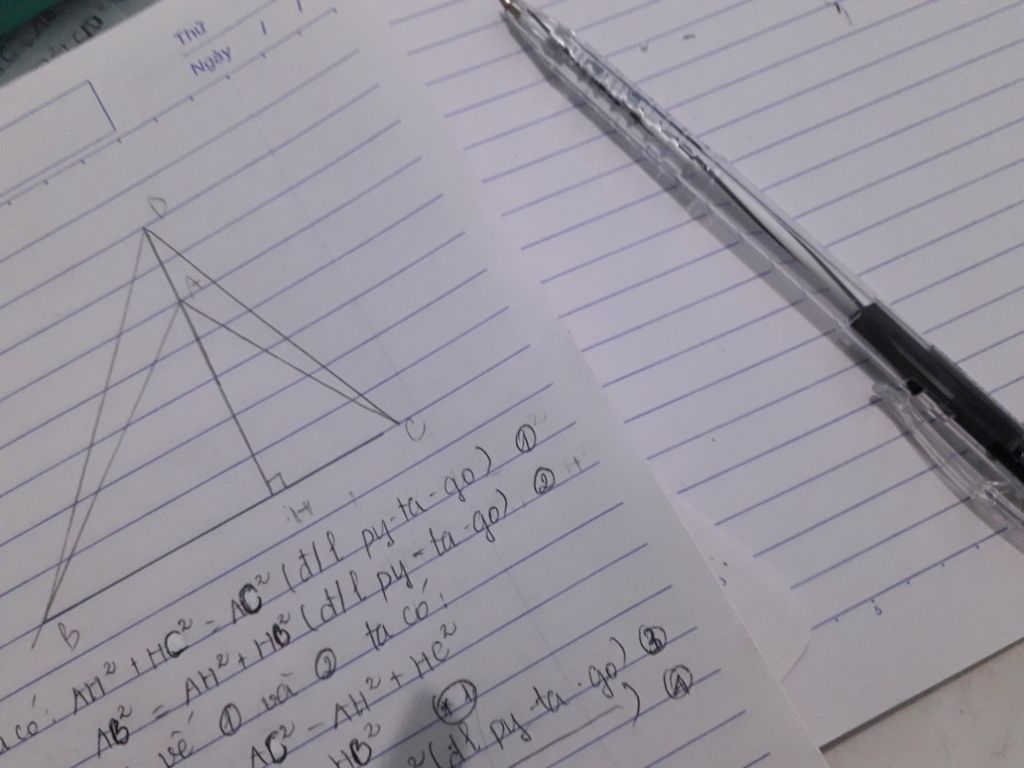 Thứ
Ngày / /
D
A
C
H
B
có: AH² + HC² = AC² (đ/l py-ta-go) ①
AB² = AH² + HB² (đ/l py-ta-go) ②
vế ① và ② ta có:
AC² - AH² + HC²
HB² (*)
² (đ/l py-ta-go) ③
) ④